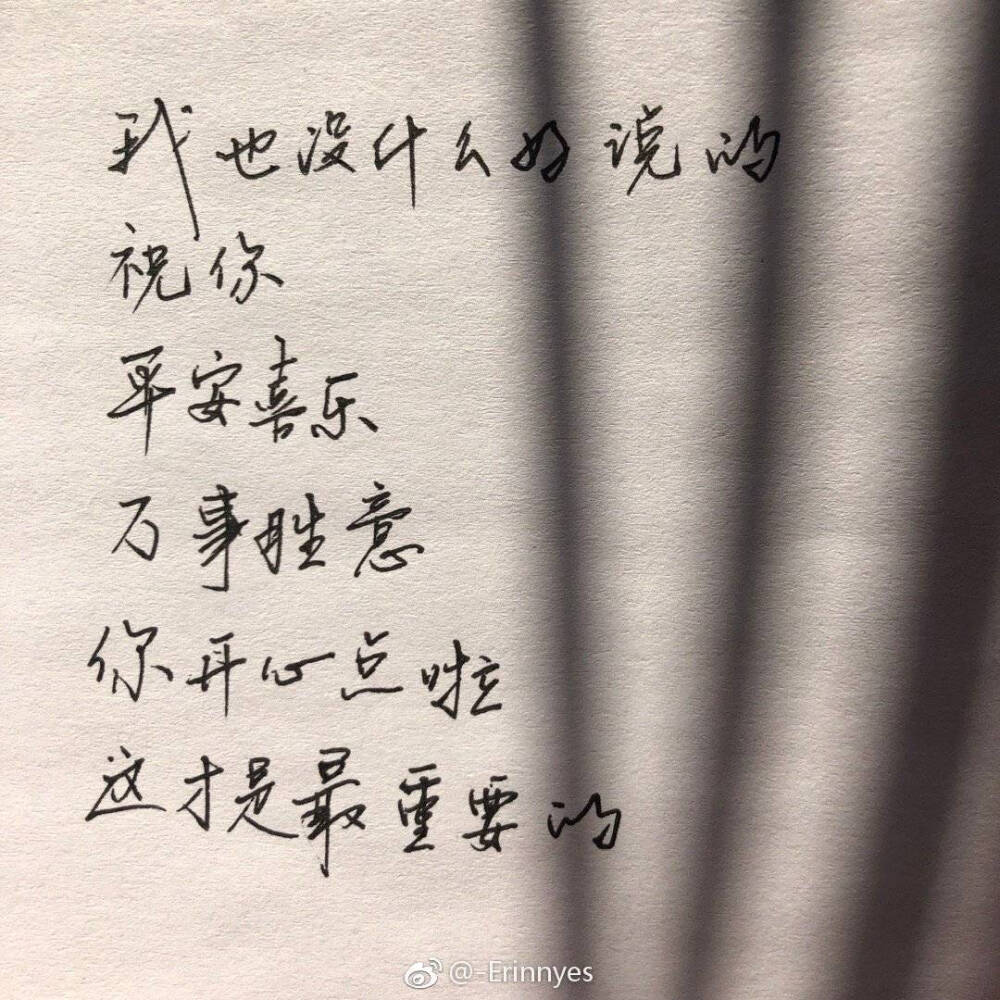 我也没什么好说的
祝你
平安喜乐
万事胜意
你开心点啦
这才是最重要的
@-Erinnyes